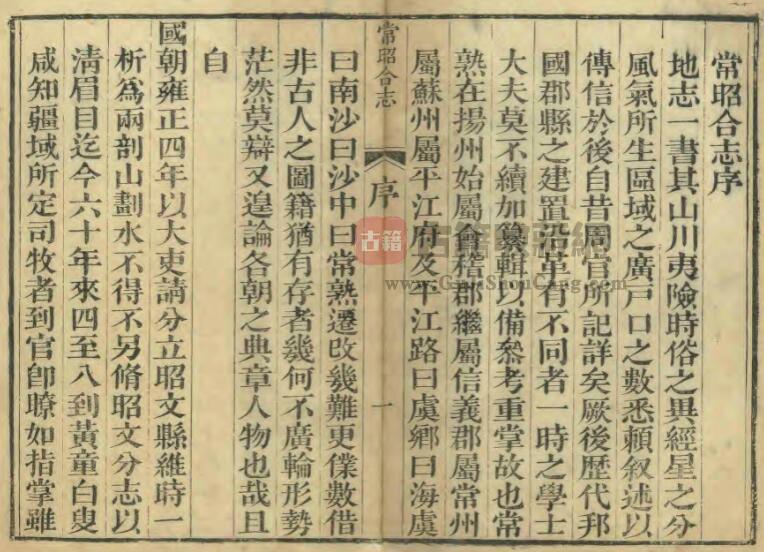 常昭合志序
地志一書其山川夷險時俗之異經星之分
風氣所生區域之廣戸口之數悉賴叙述以
傳信於後自昔周官所記詳矣厥後歷代邦
國郡縣之建置沿革有不同者一時之學士
大夫莫不續加纂輯以備叅考重掌故也常
熟在揚州始屬會稽郡繼屬信義郡屬常州
屬蘇州屬平江府及平江路曰虞鄉曰海虞
常昭合志
序
一
曰南沙曰沙中曰常熟遷改幾難更僕數借
非古人之圖籍猶有存者幾何不廣輪形勢
茫然莫辯又遑論各朝之典章人物也哉且
自
國朝雍正四年以大吏請分立昭文縣維時一
析爲兩剖山劃水不得不另脩昭文分志以
清眉目迄今六十年來四至八到黃童白叟
咸知疆域所定司牧者到官卽瞭如指掌雖
古籍
www.GuJiShouCang.com